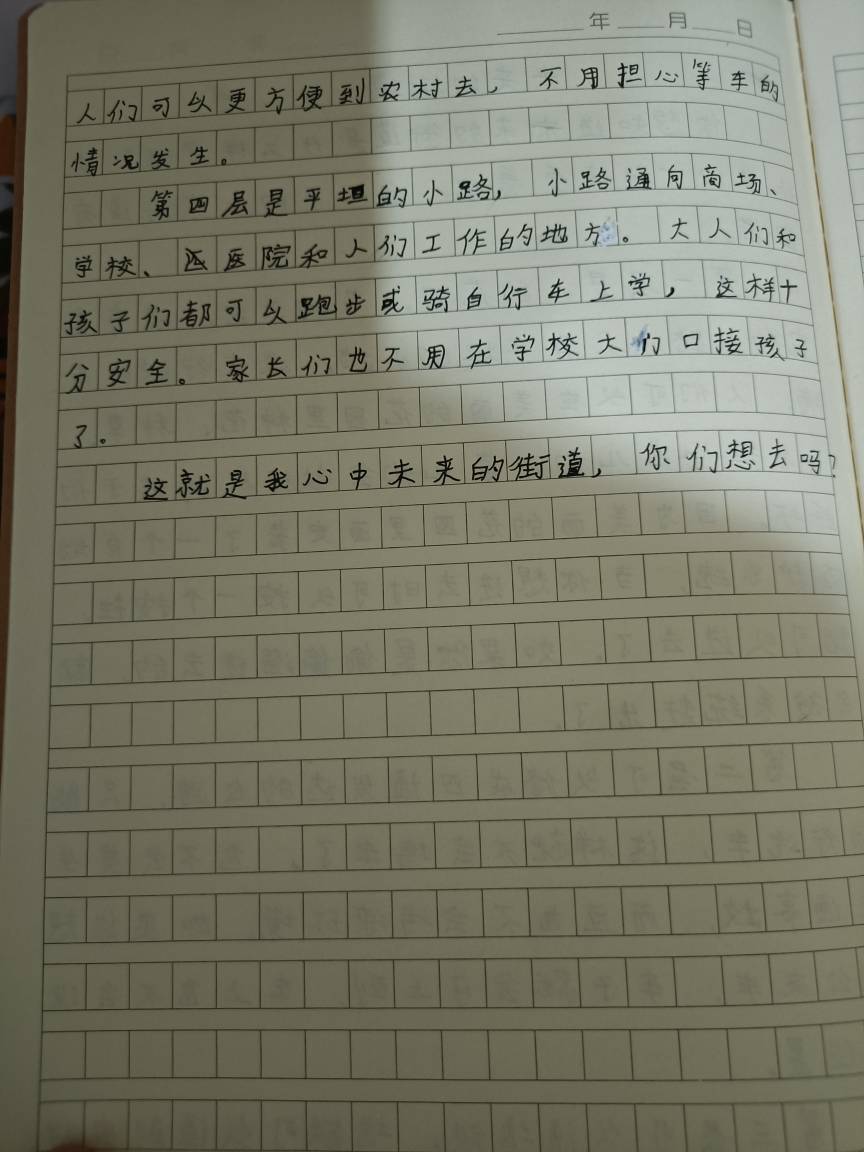 年 月 日
人们可以更方便到农村去，不用担心等车的
情况发生。
第四层是平坦的小路，小路通向商场、
学校、医院和人们工作的地方。大人们和
孩子们都可以跑步或骑自行车上学，这样十
分安全。家长们也不用在学校大门口接孩子
了。
这就是我心中未来的街道，你们想去吗？